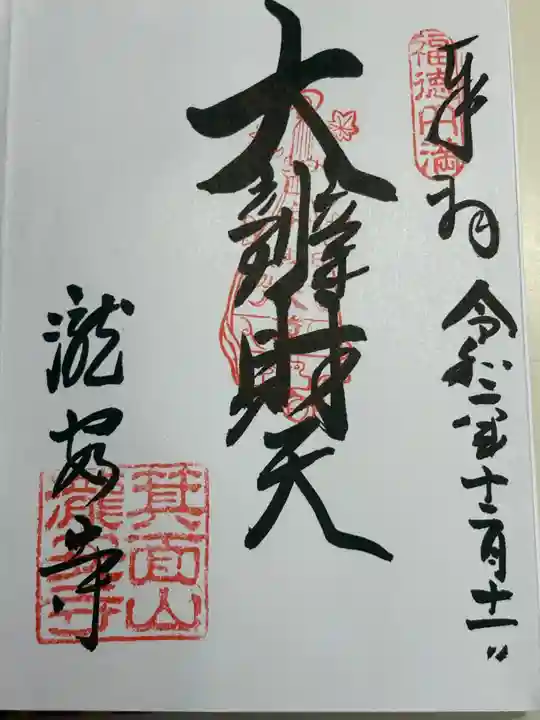 奉拝
福徳円満
令和二年十二月十一日
大辨財天
瀧安寺
箕面山
瀧安寺